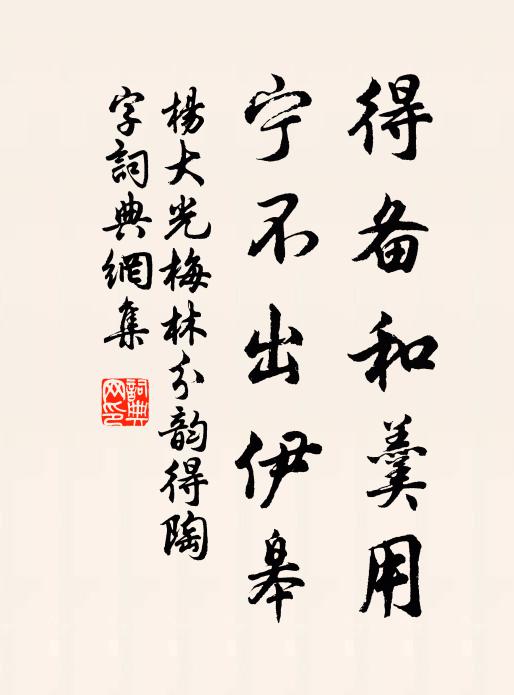 得备和羹用
宁不出伊皋
楊大光梅林分韵得陶
字詞典網集
詞典网印